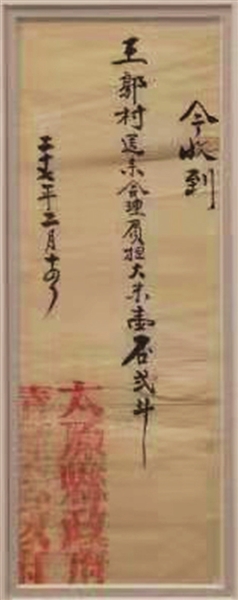 今收到
王郭村送来合理负担大米壹石弍斗
二十七年二月十四
太原縣政府